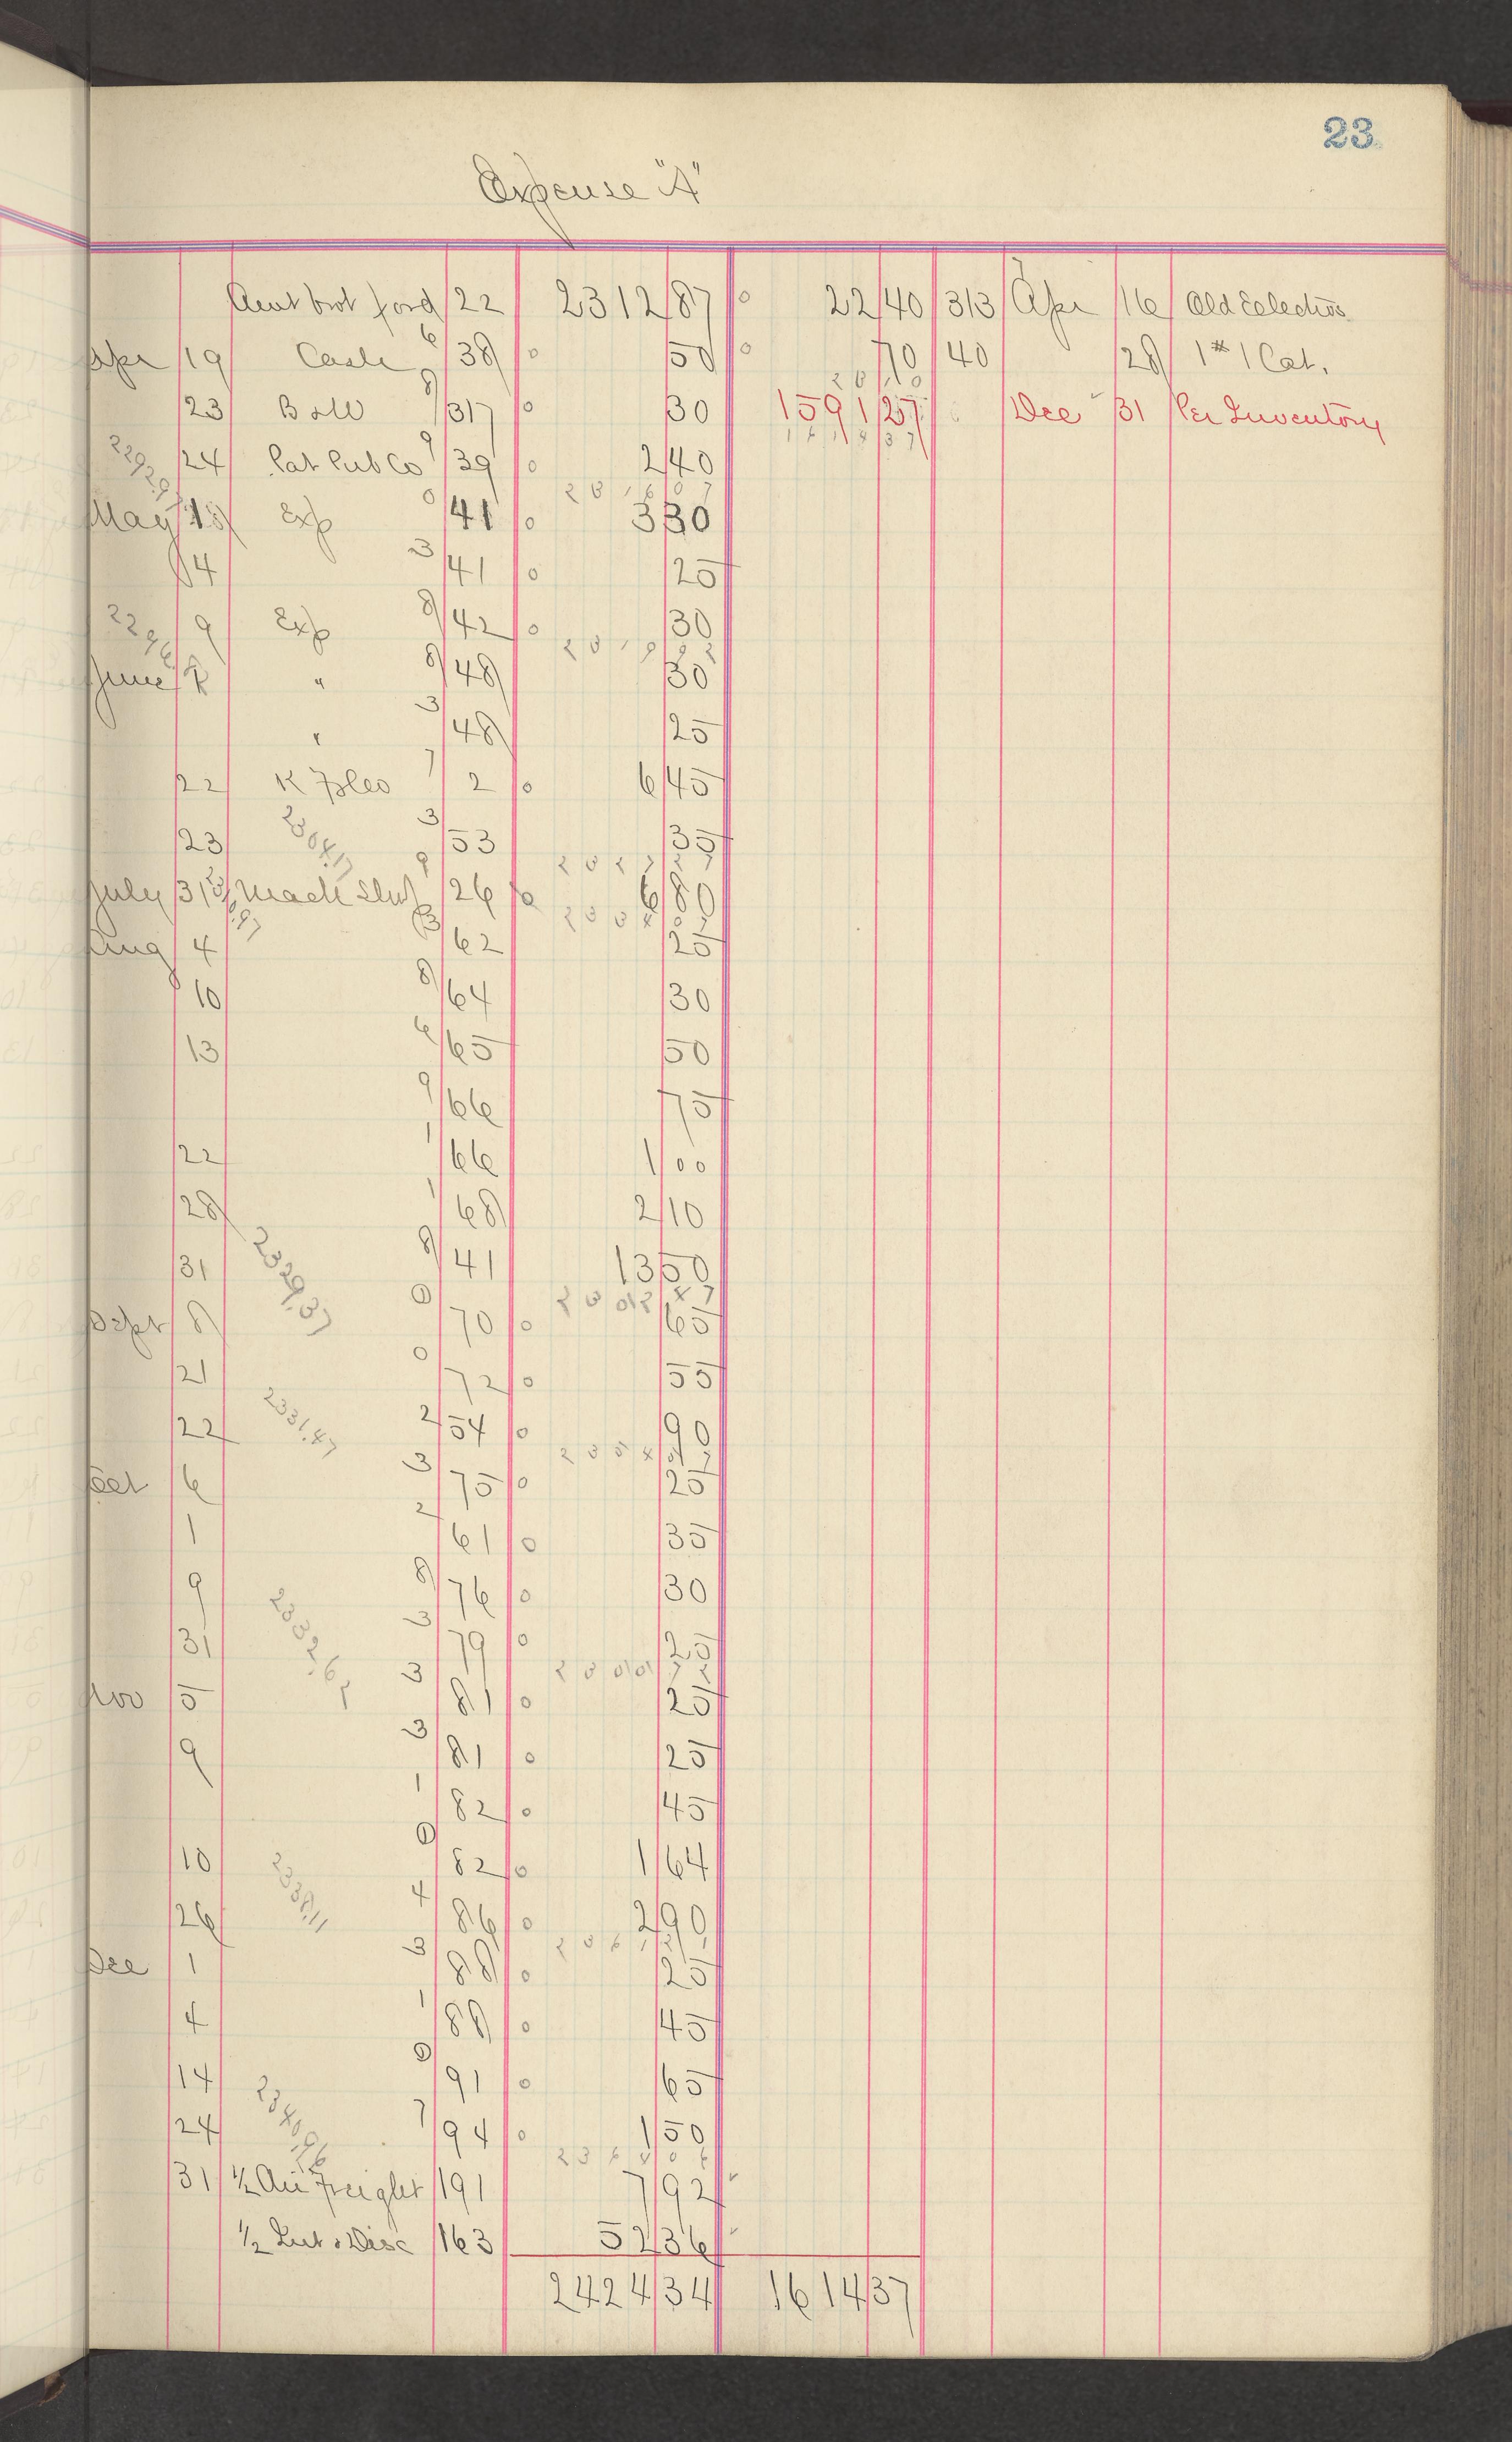 23
Expense "A"
Amt brot ford 22 2312 87 22 40 313 Apr 16 Old Selections
Apr 19 Cash 6 38 50 70 40 28 1 # 1 Cat.
23 B & W 8 317 30 1591 27 Dec 31 Per Inventory
24 Pat Pub Co 9 39 2 40
May 18 Exp 0 41 3 30
4 3 41 25
9 Exp 8 42 30
June 8 " 8 48 30
" 3 48 25
22 7 2 6 45
23 3 53 35
July 31 9 26 6 80
Aug 4 3 62 25
10 8 64 30
13 6 65 50
9 66 75
22 1 66 1 00
28 1 68 2 10
31 8 41 13 50
2329.37
Sept 8 70 65
21 0 72 55
22 2331.47 2 54 90
Oct 6 3 75 25
1 2 61 35
9 8 76 30
31 2332.67 3 79 25
Nov 5 3 81 25
9 3 81 25
1 82 45
10 82 1 64
26 2338.11 4 86 2 90
Dec 1 3 88 25
4 1 88 45
14 91 65
24 2340.96 7 94 1 50
31 1/2 Freight 191 7 92
1/2 Int & Disc 163 52 36
2424 34 1614 37